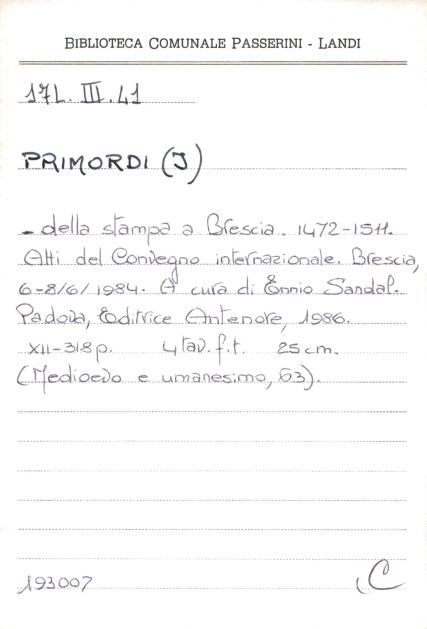 BIBLIOTECA COMUNALE PASSERINI - LANDI
17L. III. 41
PRIMORDI (I)
- della stampa a Brescia. 1472-1511.
Atti del Convegno internazionale. Brescia,
6-8/6/1984. A cura di Ennio Sandal.
Padova, Editrice Antenore, 1986.
XII-318p. 4 tav. f.t. 25 cm.
(Medioevo e umanesimo, 63).
193007 C